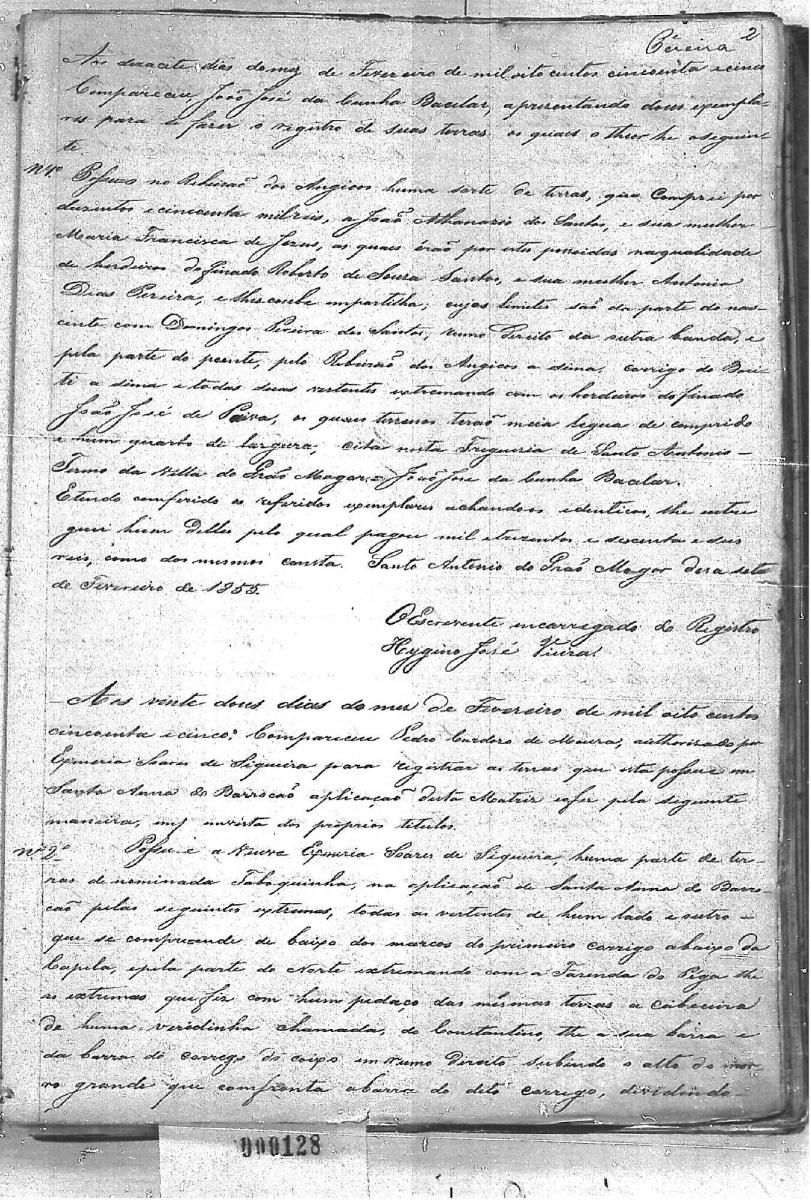 2
Aos dezacete dias do mez de Fevereiro de mil oito centos cincoenta e cinco
Compareceu, João José da Cunha Bacelar, apresentando dous exempla-
res para se fazer o registro de suas terras os quaes o theor he o seguin-
te.
Nº 1º Possuo no Ribeirão dos Angicos huma sorte de terras, que Comprei por
duzentos e cincoenta mil reis, a João Athanazio dos Santos, e sua mulher
Maria Francisca de Jezus, as quaes érão por estes possuidas na qualidade
de herdeiros do finado Roberto de Souza Santos, e sua mulher Antonia
Dias Pereira, e lhes coube em partilha; cujos limites são da parte do nas-
cente com Domingos Pereira dos Santos, rumo Direito da outra banda, e
pela parte do poente, pelo Ribeirão dos Angicos a sima, corrigo do Buri-
ti a sima e todas suas vertentes extremando com os herdeiros do finado
João José de Paiva, os quaes terrenos terão meia legua de comprido
e hum quarto de largura; cita nesta Freguezia de Santo Antonio -
Termo da Villa do Grão Mogor = João José da Cunha Bacelar.
E tendo comferido os referidos exemplares achandoos identicos, lhe entre
guei hum Delles pelo qual pagou mil e trezentos, e sescenta e seis
reis, como dos mesmos consta. Santo Antonio do Grão Mogor deza sete
de Fevereiro de 1855.
O Escrevente encarregado do Registro
Hygino José Vieira.
- Aos vinte dous dias do mez de Fevereiro de mil oito centos
cincoenta e cinco; Compareceu Pedro Cardozo de Moura, authorisado por
Exmeria Soares de Siqueira para registrar as terras que esta possue em
Santa Anna do Barrocão aplicação desta Matriz e fez pela seguinte
maneira, em vista dos proprios titulos.
Nº 2º Possue a Viuva Exmeria Soares de Siqueira, huma parte de ter-
ras de nominada Taboquinha, na aplicação de Santa Anna do Barro-
cão pelas seguintes extremas, todas as vertentes de hum lado e outro -
que se comprende de baixo dos marcos do primeiro corrigo abaixo da
Capela, e pela parte do Norte extremando com a Fazenda do Péga the
as extremas que fiz com hum pedaço das mesmas terras a cabeceira
de huma veredinha chamada, do Constantino, the a sua barra e
da barra do corrego do coixo em Rumo Direito subindo o alto do mor-
ro grande que comfronta a barra do dito corrego, dividindo -
000128